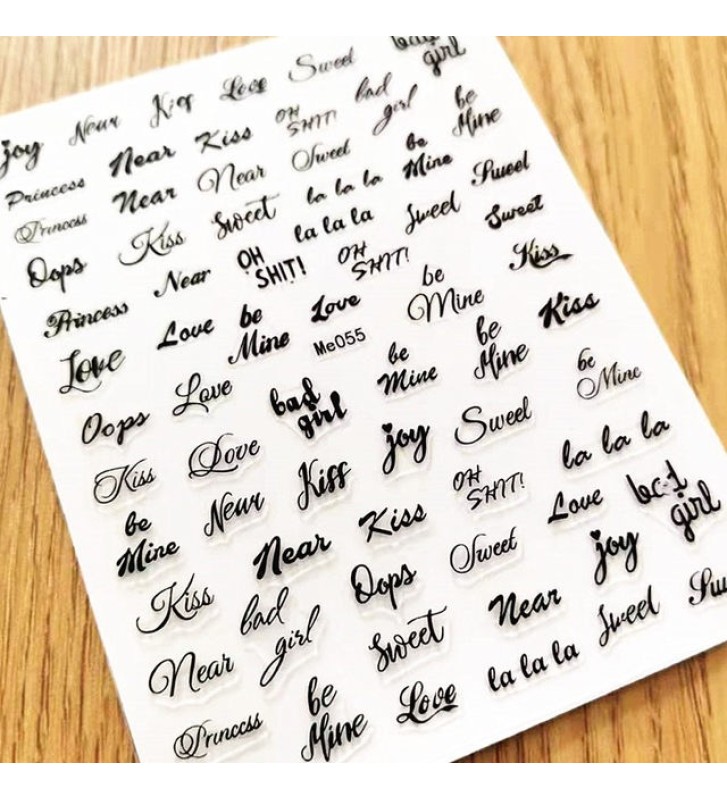 bad girl
joy Near Kiss Love Sweet
Princess Near Kiss OH SHIT! bad girl be Mine
Princess Near Near Sweet be Mine
Oops Kiss Sweet la la la Sweet
Princess Near OH SHIT! la la la Sweet Sweet
Love Love be Mine OH SHIT! be Mine Kiss
Love Me055
Oops Love bad girl be Mine be Mine Kiss
Kiss Love joy Sweet be Mine
be Mine Near Kiss OH SHIT! la la la
Near Kiss Love bad girl
Kiss bad girl Oops Sweet joy
Near Sweet Near Sweet
Princess be Mine Love la la la